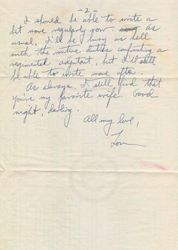 - 2 -
I should be able to write a
bit more regularly now as
usual, I'll be busy as hell
with the routine duties confronting a
regimental adjutant, but I'll still
be able to write more often.
As always, I still find that
you're my favorite wife. Good
night, darling.
All my love,
Tom